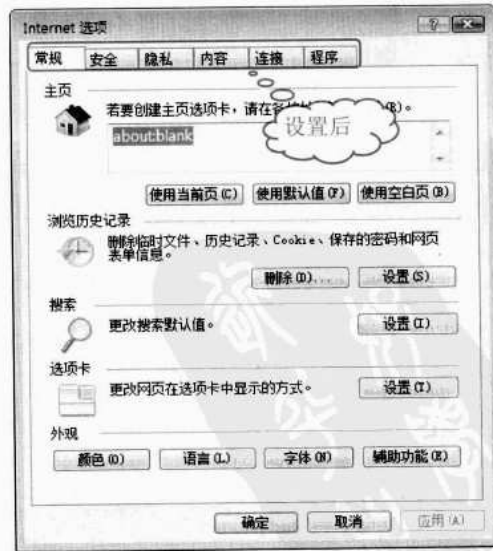 Internet 选项
常规 安全 隐私 内容 连接 程序
主页
若要创建主页选项卡，请在各 (R)。
设置后
about:blank
使用当前页(C) 使用默认值(F) 使用空白页(B)
浏览历史记录
删除临时文件、历史记录、Cookie、保存的密码和网页
表单信息。
删除(D)... 设置(S)
搜索
更改搜索默认值。
设置(I)
选项卡
更改网页在选项卡中显示的方式。
设置(T)
外观
颜色(O) 语言(L) 字体(N) 辅助功能(E)
确定 取消 应用(A)